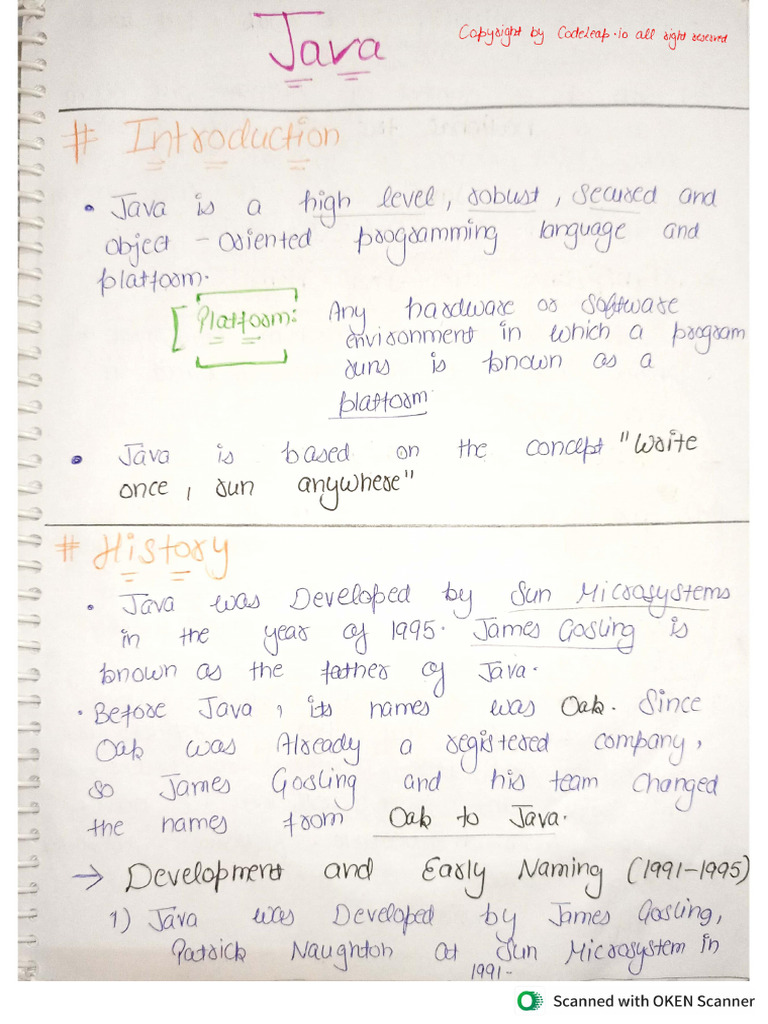 Java
Copyright by Codeleap.io all right reserved
# Introduction
• Java is a high level, robust, secured and
object-oriented programming language and
platform.
Platform: Any hardware or software
environment in which a program
runs is known as a
platform.
• Java is based on the concept "write
once, run anywhere"
# History
• Java was Developed by Sun Microsystems
in the year of 1995. James Gosling is
known as the father of Java.
• Before Java, its names was Oak. Since
Oak was Already a registered company,
so James Gosling and his team changed
the names from Oak to Java.
→ Development and Early Naming (1991-1995)
1) Java was Developed by James Gosling,
Patrick Naughton at Sun Microsystem in
1991-
Scanned with OKEN Scanner